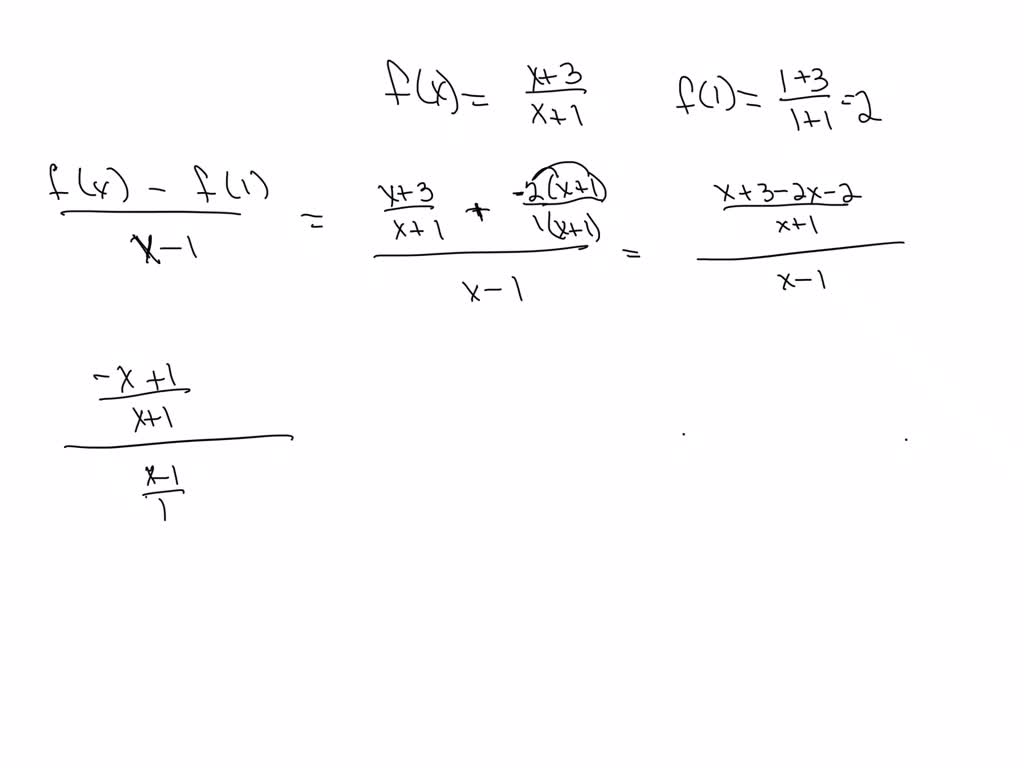 f(x) = (x+3)/(x+1)    f(1) = (1+3)/(1+1) = 2
(f(x) - f(1))/(x-1) = ((x+3)/(x+1) + (-2(x+1))/(1(x+1)))/(x-1) = ((x+3-2x-2)/(x+1))/(x-1)
((-x+1)/(x+1))/((x-1)/1)